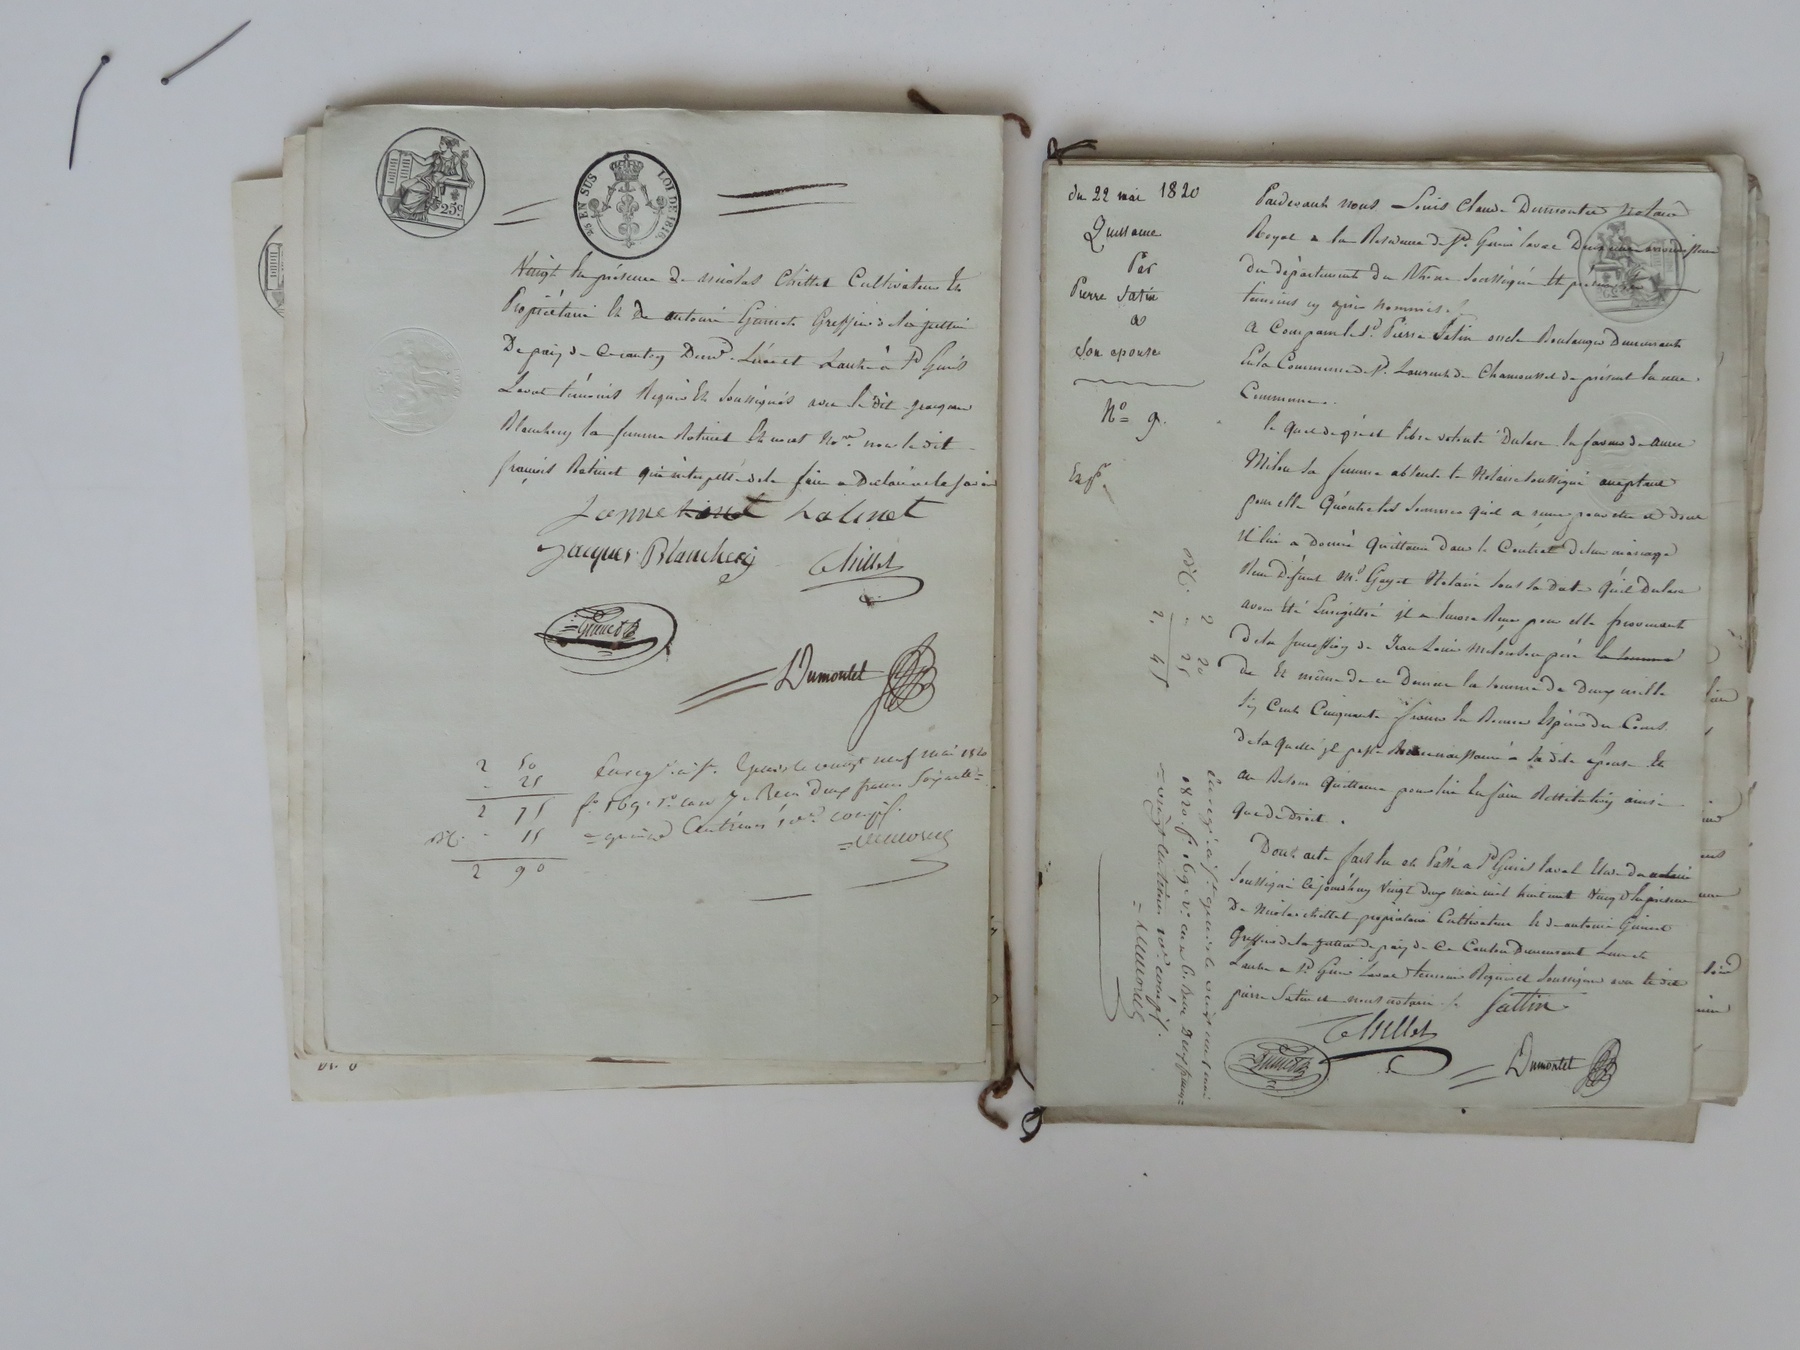 25 EN SUS LOI DE 1816.
25c
Vingt En présence de nicolas Chillet Cultivateur Et
Propriétaire Et De antoine Guinet Greffier de la justice
De paix de ce canton Dem.t Lun et Lautre à S.t Genis
Laval témoins Requis Et Soussignés avec le dit Jacques
Blanchery la femme Ratinet Et nous No.re non le dit
françois Ratinet qui interpellé de le faire a Déclaré ne le savoir
Jeanne Ratinet
Jacques Blanchery Chillet
Guinet
Dumortet
2 50
25
2 75
15
2 90
Enreg. à S.t Genis le vingt neuf mai 1820
f.o 169 r.o case 7 Reçu deux francs soixante
quinze Centimes 10.e compris.
du 22 mai 1820
Quittance
Par
Pierre Satin
a
Son epouse
N.o 9.
Ex p.r
Pardevant nous Louis Claude Dumortet Notaire
Royal a la Residence de S.t Genis laval Deuxieme arrondissement
du département du Rhône Soussigné Et présence des
temoins cy après nommés.
A Comparu le S.r Pierre Satin Boulanger Demeurant
En la Commune de S.t Laurent de Chamousset de présent En cette
Commune.
le quel de gré et libre volonté Declare En faveur de
Milou sa femme absente le Notaire soussigné acceptant
pour elle Qu'outre les sommes quil a reçues pour elle et dont
Il lui a Donné Quittance Dans le Contrat de leur mariage
Reçu Défunt M.e Gayet Notaire Sous sa date Quil Declare
avoir Eté Enregistré il a Encore Reçu pour elle provenant
de la succession de Jean Louis Milou Son père la somme
de Et même de ce Dernier la somme de Deux mille
Six Cent Cinquante francs En Bonnes Espèces du Cours
de la quelle il passe Reconnaissance à sa dite Epouse Et
au Besoin Quittance pour lui En faire Restitution ainsi
que de droit.
Dont acte fait lu et Passé a S.t Genis laval Etude du notaire
Soussigné Cejourdhuy Vingt Deux mai mil huit cent Vingt En présence
De Nicolas Chillet propriétaire Cultivateur Et de antoine Guinet
Greffier de la justice de paix de Ce Canton Demeurant Lun et
Lautre a S.t Genis Laval temoins Requis et Soussignés avec le dit
pierre Satin et nous notaire
Sattin
Chillet
Guinet
Dumortet
2 20
25
2. 45
Enreg. à S.t Genis le vingt neuf mai
1820 f.o 169 v.o case 6. Reçu Deux francs
vingt centimes 10.e compris.